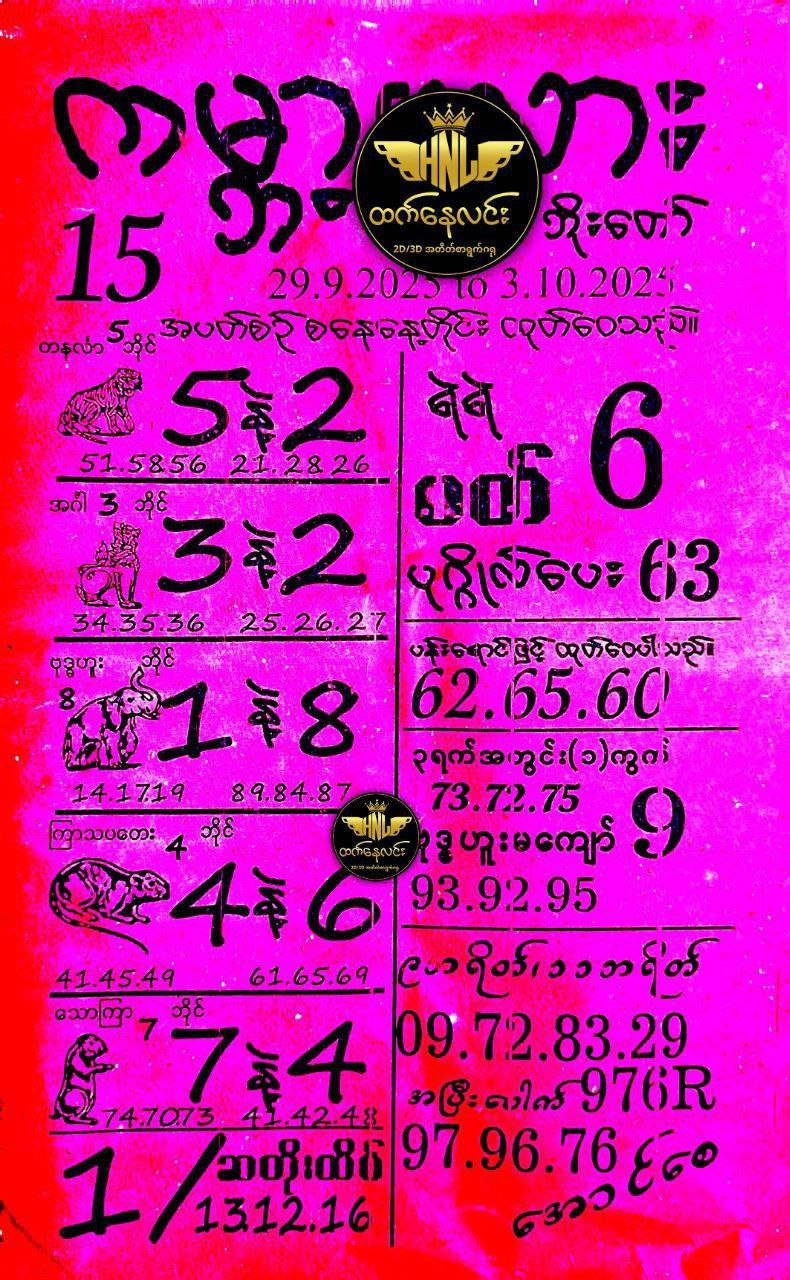 ကမ္ဘာ
HNL
ထက်နေလင်း
2D/3D အတိတ်စာရွက်ဂရု
15
ဘိုးတော်
29.9.2025 to 3.10.2025
အပတ်စဉ် စနေနေ့တိုင်း ထုတ်ဝေသည်။
တနင်္လာ 5 ဘိုင်
5 နဲ့ 2
51.58.56 21.28.26
အင်္ဂါ 3 ဘိုင်
3 နဲ့ 2
34.35.36 25.26.27
ဗုဒ္ဓဟူး ဘိုင်
8
1 နဲ့ 8
14.17.19 89.84.87
ကြာသပတေး 4 ဘိုင်
4 နဲ့ 6
41.45.49 61.65.69
သောကြာ 7 ဘိုင်
7 နဲ့ 4
74.70.73 41.42.48
1/ ဆတိုးထိပ်
13.12.16
ရဲရဲ
ဖတ် 6
ပုဂ္ဂိုလ်ပေး 63
ပန်းရောင်ဖြင့် ထုတ်ဝေပါသည်။
62.65.60
၃ရက်အတွင်း(၁)ကွက်
73.72.75
ဗုဒ္ဓဟူးမကျော် 9
93.92.95
HNL
ထက်နေလင်း
09.72.83.29
အပြီးပေါက် 976R
97.96.76
အောင်စေ